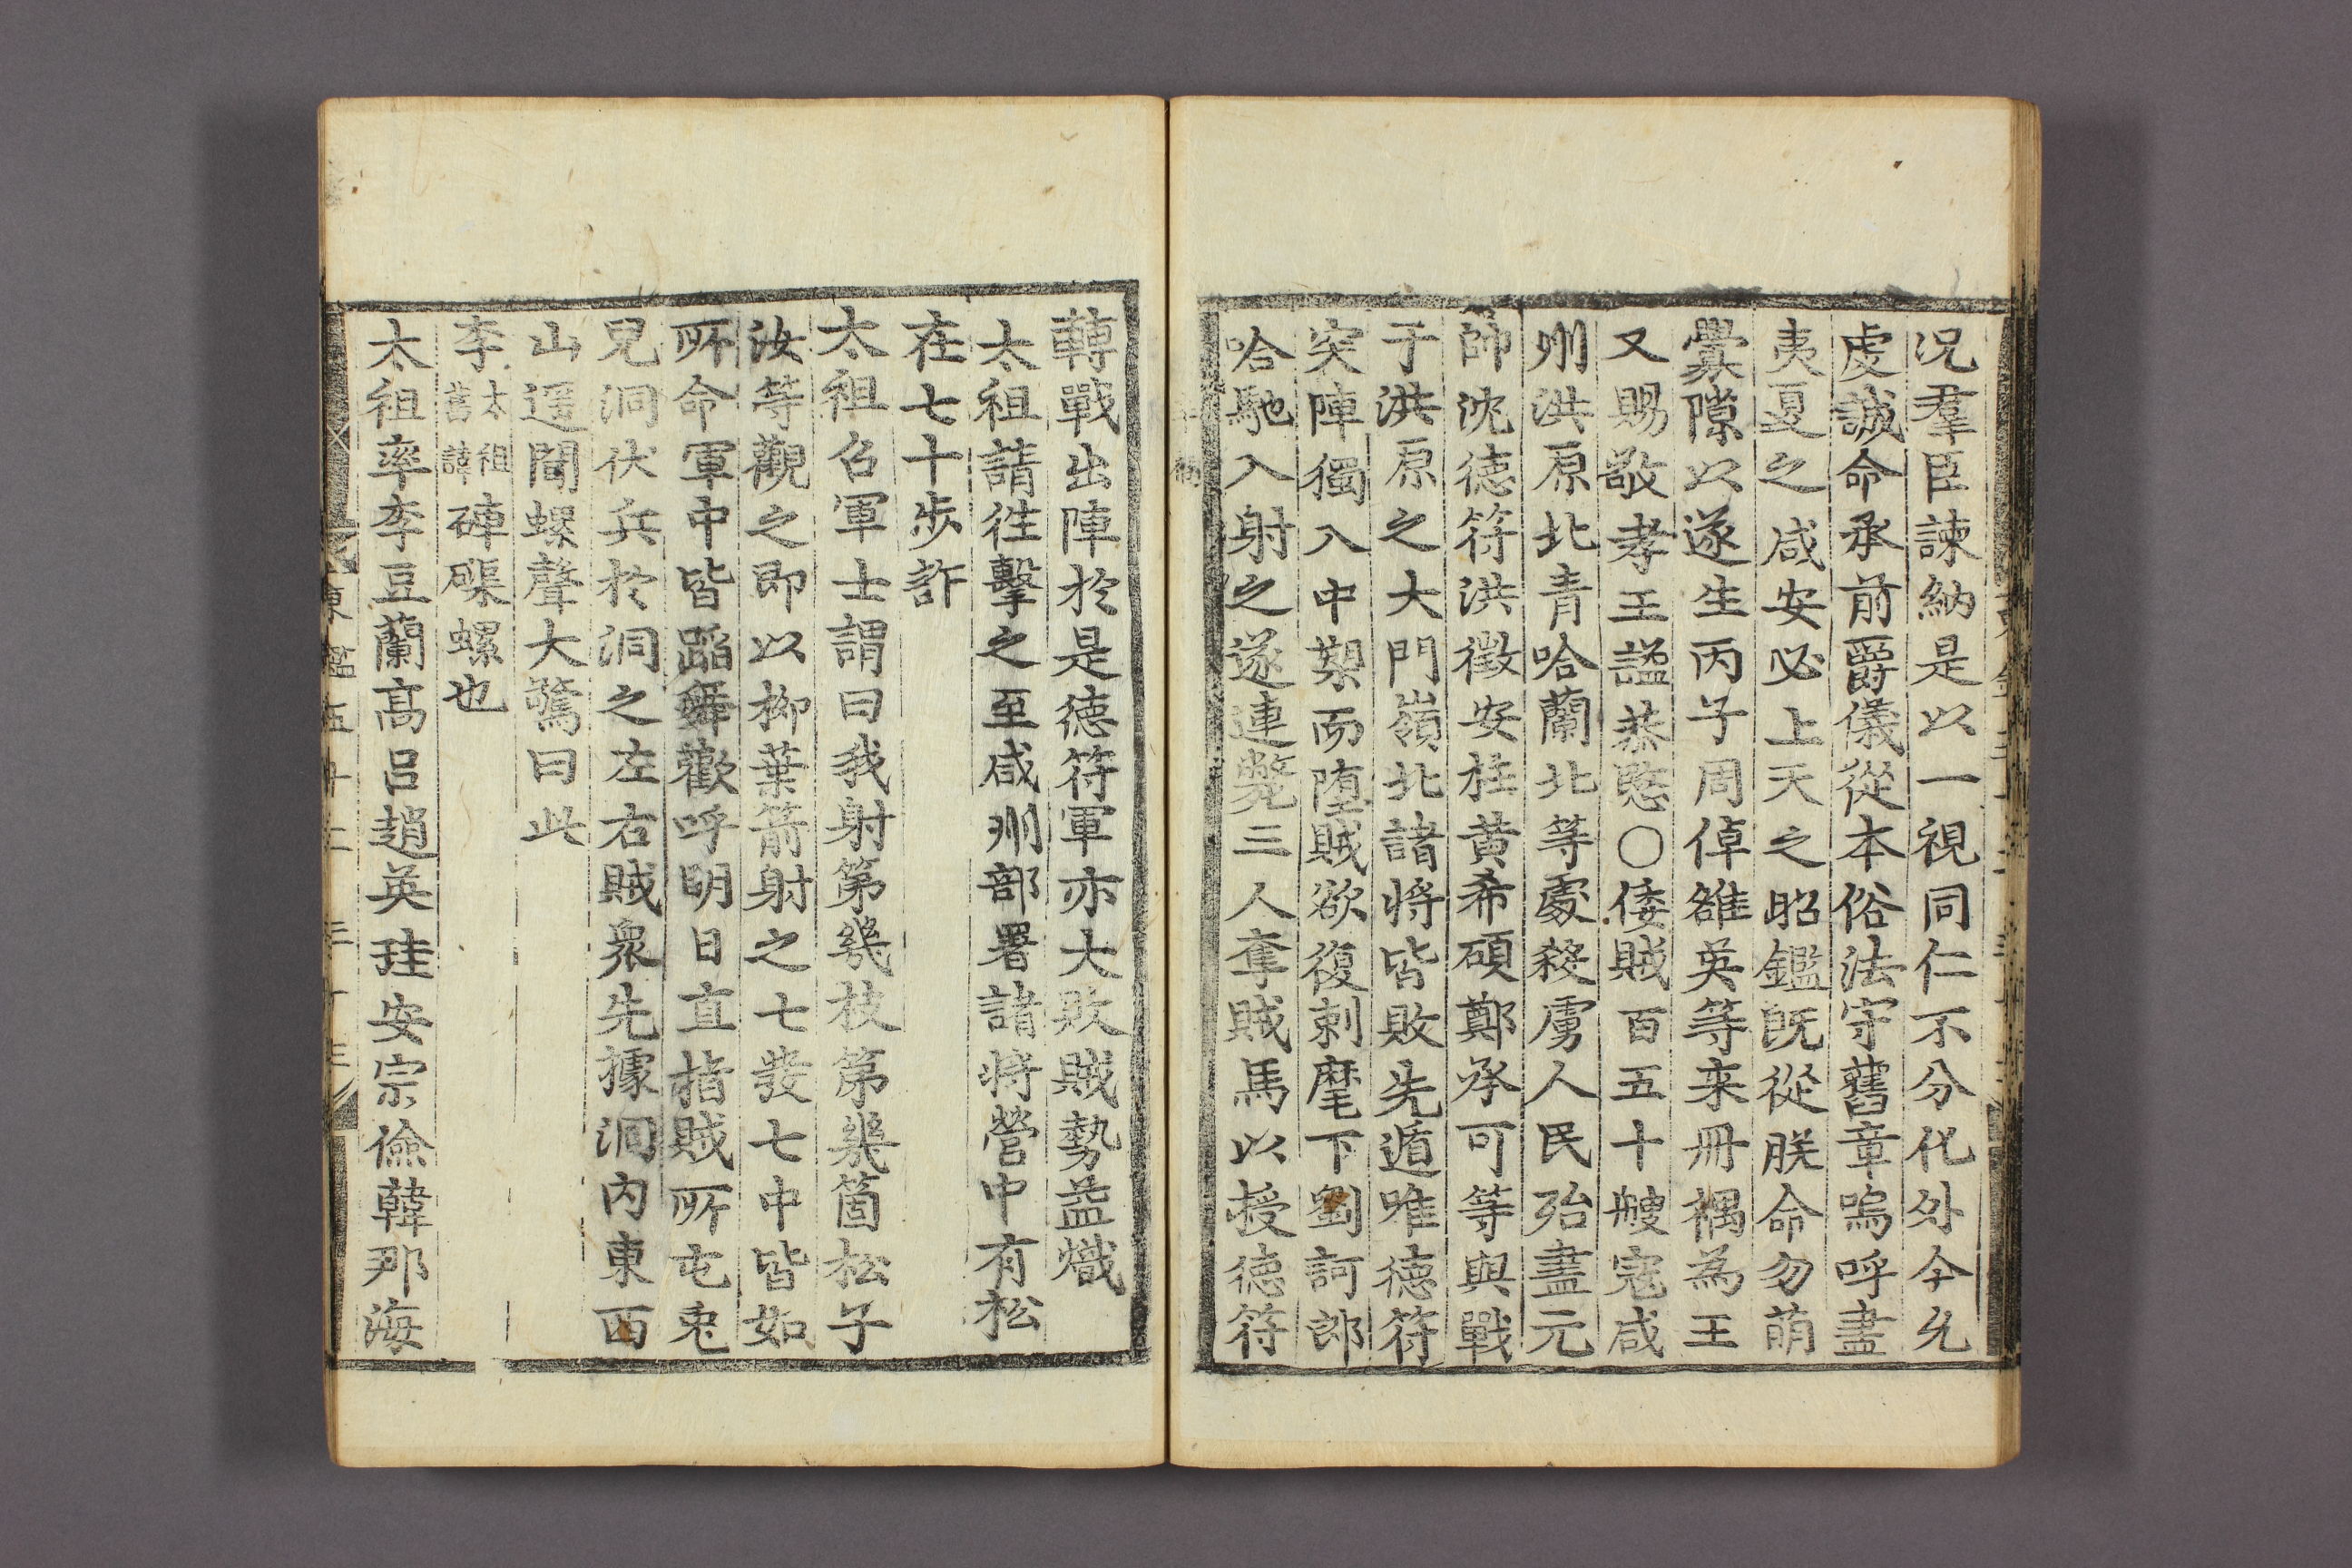 况羣臣諫納是以一視同仁不分化外今允
虔誠命承前爵儀從本俗法守舊章嗚呼盡
夷夏之咸安必上天之昭鑑旣從朕命勿萌
釁隙以遂生丙子周倬雒英等来冊禑為王
又賜敬孝王謚恭愍〇倭賊百五十艘寇咸
州洪原北青哈蘭北等處殺虜人民殆盡元
帥沈德符洪徵安柱黃希碩鄭承可等與戰
于洪原之大門嶺北諸将皆敗先遁唯德符
突陣獨入中槊而墮賊欲復刺麾下劉訶郎
哈馳入射之遂連斃三人奪賊馬以授德符
轉戰出陣於是德符軍亦大敗賊勢益熾
太祖請徃擊之至咸州部署諸将營中有松
在七十步許
太祖召軍士謂曰我射第幾枝第幾箇松子
汝等觀之即以柳葉箭射之七發七中皆如
所命軍中皆蹈舞歡呼明日直指賊所屯兎
兒洞伏兵於洞之左右賊衆先據洞內東西
山遥聞螺聲大驚曰此
李太祖舊諱硨磲螺也
太祖率李豆蘭高呂趙英珪安宗儉韓那海